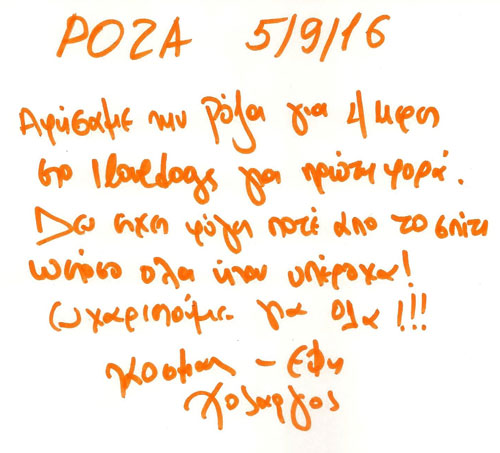 ΡΟΖΑ 5/9/16
Αφήσαμε την Ρόζα για 4 μέρες
στο Ilovedogs για πρώτη φορά.
Δεν είχε φύγει ποτέ από το σπίτι
ωστόσο όλα ήταν υπέροχα!
Ευχαριστούμε για όλα!!!
Κοσμάς - Έφη
Χολαργός